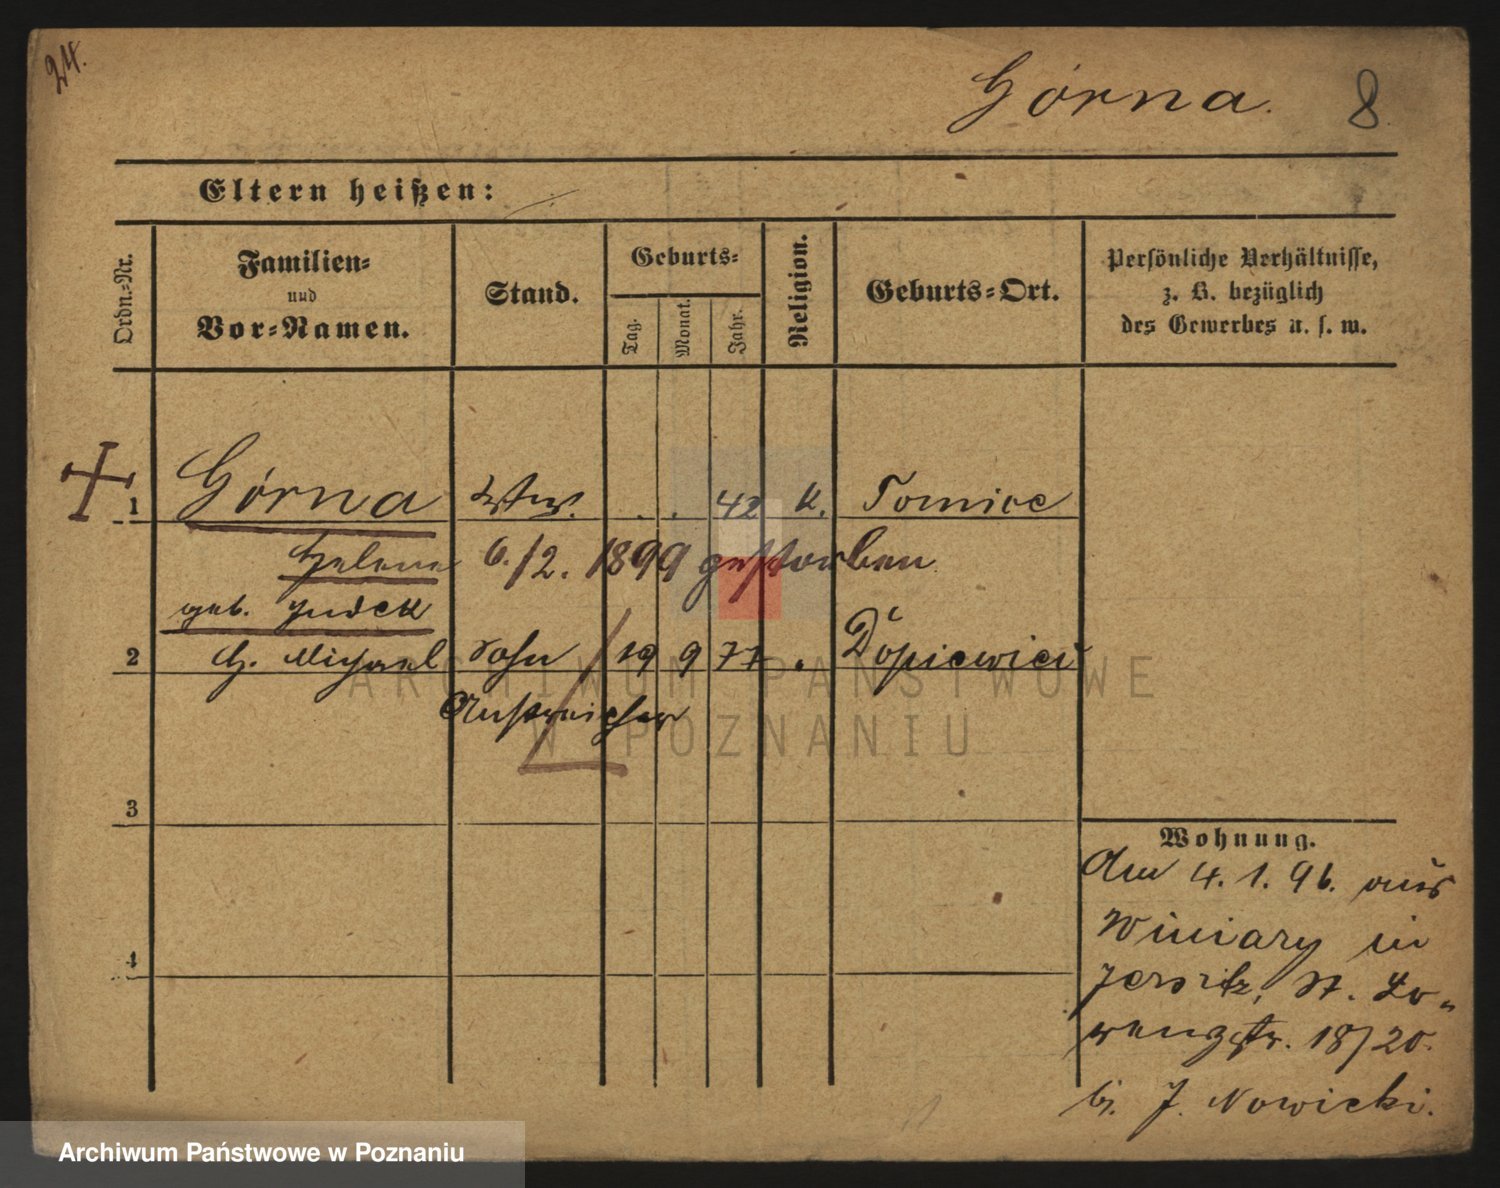 24.
Górna. 8
Eltern heißen:
Ordn.-Nr.
Familien-
und
Vor-Namen.
Stand.
Geburts-
Tag.
Monat.
Jahr.
Religion.
Geburts-Ort.
Persönliche Verhältnisse,
z. B. bezüglich
des Gewerbes u. s. w.
1 Górna Wtw. . . 42 k. Tomice
Helene 6./2. 1899 gestorben
geb. Judek
2 G. Michael Sohn 19 9 77 . Dopiewiec
Anstreicher
3
4
Wohnung.
Am 4.1.96. aus
Winiary in
Jersitz, St. Lo-
renzstr. 18/20.
bei J. Nowicki.
ARCHIWUM PAŃSTWOWE
W POZNANIU
Archiwum Państwowe w Poznaniu